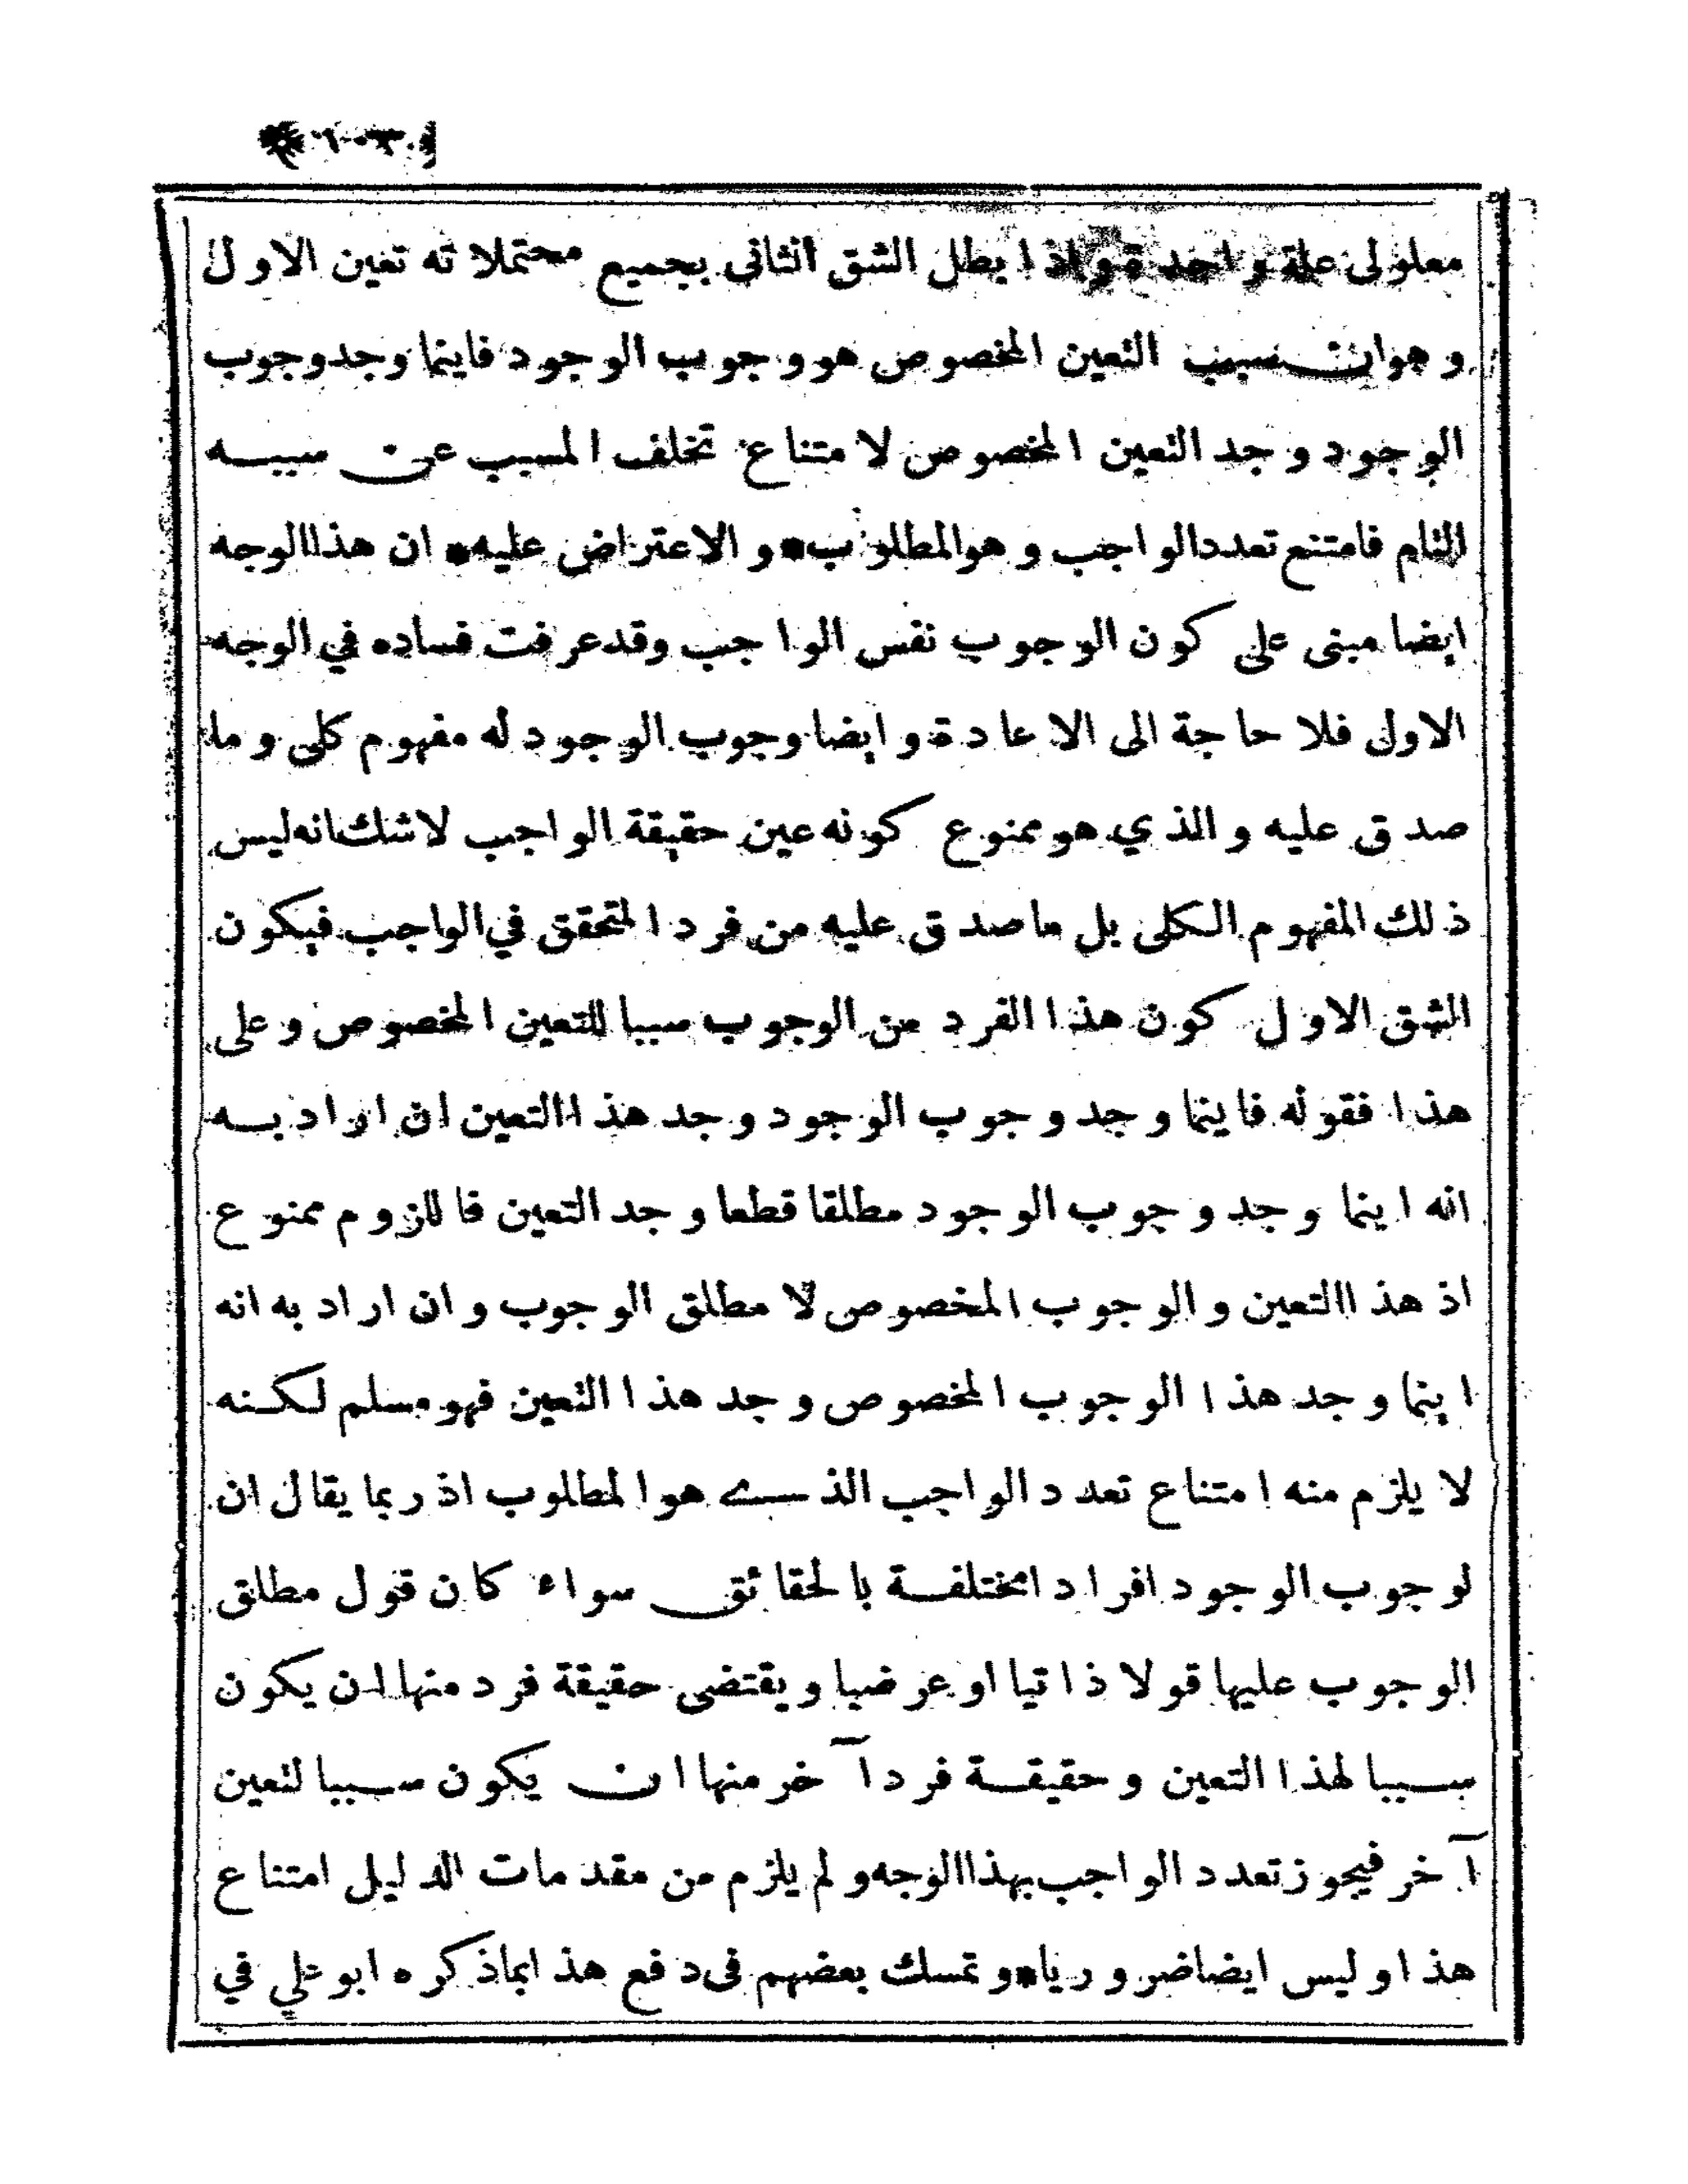 معلولى علة واحدة واذا بطل الشق الثانى بجميع محتملاته تعين الاول
وهوان سبب التعين المخصوص هو وجوب الوجود فاينما وجدوجوب
الوجود وجد التعين المخصوص لامتناع تخلف المسبب عن سببه
التام فامتنع تعددالواجب وهوالمطلوب * والاعتراض عليه * ان هذاالوجه
ايضا مبنى على كون الوجوب نفس الواجب وقدعرفت فساده في الوجه
الاول فلا حاجة الى الاعادة وايضا وجوب الوجود له مفهوم كلى وما
صدق عليه والذي هو ممنوع كونه عين حقيقة الواجب لاشك انه ليس
ذلك المفهوم الكلى بل ماصدق عليه من فرد المتحقق في الواجب فيكون
الشق الاول كون هذا الفرد من الوجوب سببا للتعين المخصوص وعلى
هذا فقوله فاينما وجد وجوب الوجود وجد هذا التعين ان اراد به
انه اينما وجد وجوب الوجود مطلقا قطعا وجد التعين فاللزوم ممنوع
اذ هذا التعين والوجوب المخصوص لا مطلق الوجوب وان اراد به انه
اينما وجد هذا الوجوب المخصوص وجد هذا التعين فهو مسلم لكنه
لا يلزم منه امتناع تعدد الواجب الذى هو المطلوب اذ ربما يقال ان
لوجوب الوجود افرادا مختلفة بالحقائق سواء كان قول مطلق
الوجوب عليها قولا ذاتيا او عرضيا ويقتضى حقيقة فرد منها ان يكون
سببا لهذا التعين وحقيقة فرد آخر منها ان يكون سببا لتعين
آخر فيجوز تعدد الواجب بهذا الوجه و لم يلزم من مقدمات الدليل امتناع
هذا وليس ايضا ضروريا * وتمسك بعضهم فى دفع هذا بماذكره ابو علي في